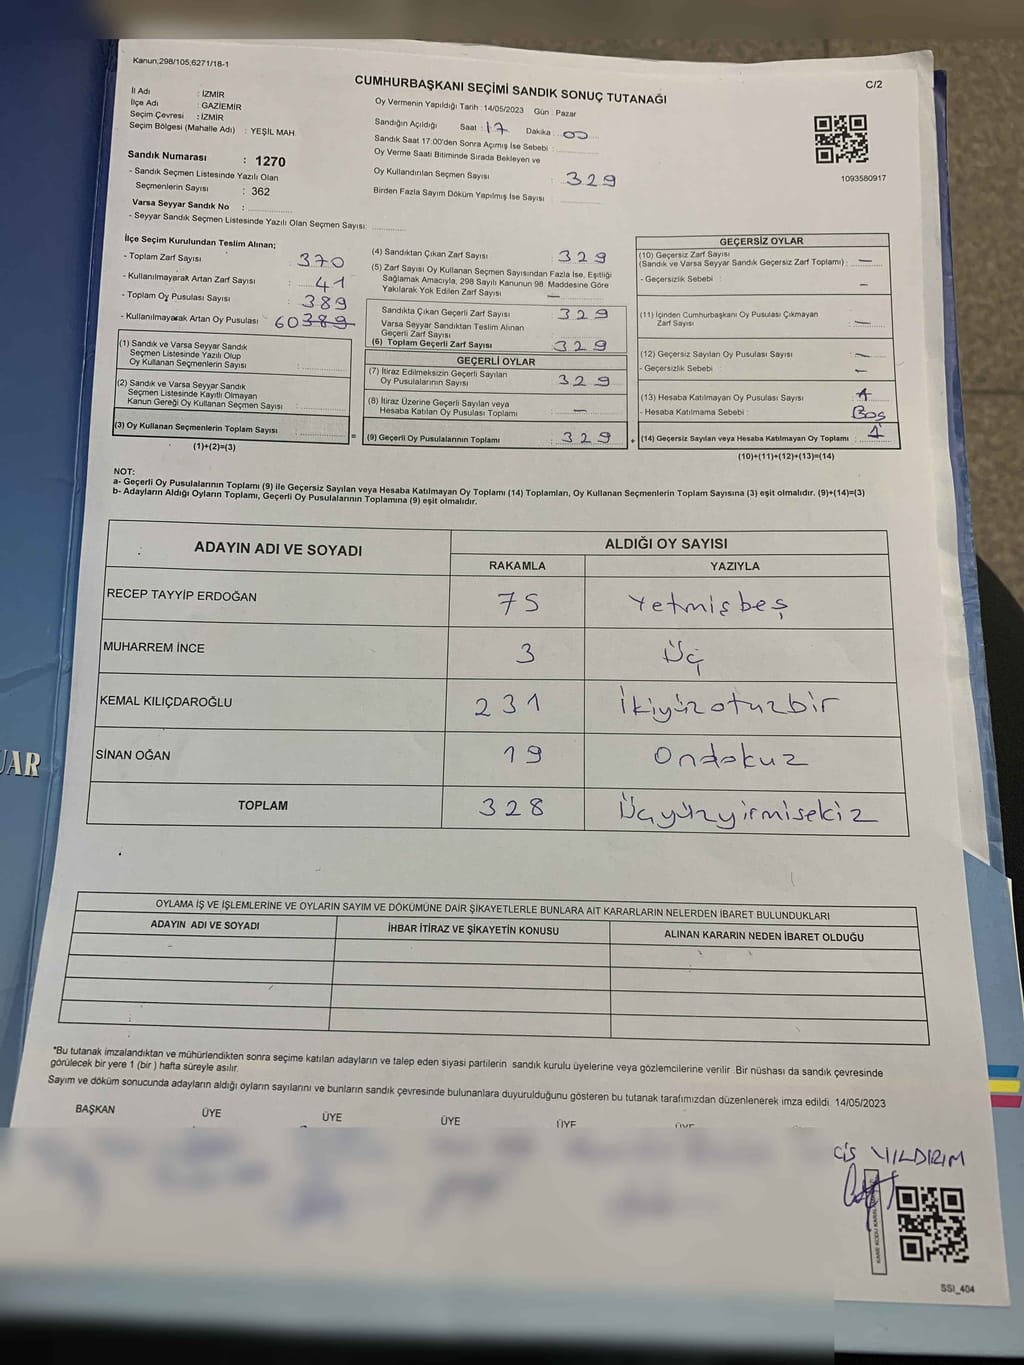 Kanun;298/105;6271/18-1
C/2
CUMHURBAŞKANI SEÇİMİ SANDIK SONUÇ TUTANAĞI
İl Adı : İZMİR
İlçe Adı : GAZİEMİR
Seçim Çevresi : İZMİR
Seçim Bölgesi (Mahalle Adı) : YEŞİL MAH.
Sandık Numarası : 1270
- Sandık Seçmen Listesinde Yazılı Olan
Seçmenlerin Sayısı : 362
Varsa Seyyar Sandık No :
- Seyyar Sandık Seçmen Listesinde Yazılı Olan Seçmen Sayısı:
Oy Vermenin Yapıldığı Tarih :14/05/2023 Gün : Pazar
Sandığın Açıldığı Saat : 17 Dakika : 00
Sandık Saat 17:00'den Sonra Açımış İse Sebebi :
Oy Verme Saati Bitiminde Sırada Bekleyen ve
Oy Kullandırılan Seçmen Sayısı : 329
Birden Fazla Sayım Döküm Yapılmış İse Sayısı
1093580917
İlçe Seçim Kurulundan Teslim Alınan;
- Toplam Zarf Sayısı : 370
- Kullanılmayarak Artan Zarf Sayısı : 41
- Toplam Oy Pusulası Sayısı : 389
- Kullanılmayarak Artan Oy Pusulası : 60 389
(1) Sandık ve Varsa Seyyar Sandık
Seçmen Listesinde Yazılı Olup
Oy Kullanan Seçmenlerin Sayısı :
(2) Sandık ve Varsa Seyyar Sandık
Seçmen Listesinde Kayıtlı Olmayan
Kanun Gereği Oy Kullanan Seçmen Sayısı :
(3) Oy Kullanan Seçmenlerin Toplam Sayısı :
(1)+(2)=(3)
(4) Sandıktan Çıkan Zarf Sayısı : 329
(5) Zarf Sayısı Oy Kullanan Seçmen Sayısından Fazla İse, Eşitliği
Sağlamak Amacıyla, 298 Sayılı Kanunun 98. Maddesine Göre
Yakılarak Yok Edilen Zarf Sayısı : —
Sandıkta Çıkan Geçerli Zarf Sayısı : 329
Varsa Seyyar Sandıktan Teslim Alınan
Geçerli Zarf Sayısı :
(6) Toplam Geçerli Zarf Sayısı : 329
GEÇERLİ OYLAR
(7) İtiraz Edilmeksizin Geçerli Sayılan
Oy Pusulalarının Sayısı : 329
(8) İtiraz Üzerine Geçerli Sayılan veya
Hesaba Katılan Oy Pusulası Toplamı : —
= (9) Geçerli Oy Pusulalarının Toplamı : 329
GEÇERSİZ OYLAR
(10) Geçersiz Zarf Sayısı
(Sandık ve Varsa Seyyar Sandık Geçersiz Zarf Toplamı) : —
- Geçersizlik Sebebi : —
(11) İçinden Cumhurbaşkanı Oy Pusulası Çıkmayan
Zarf Sayısı : —
(12) Geçersiz Sayılan Oy Pusulası Sayısı : —
- Geçersizlik Sebebi : —
(13) Hesaba Katılmayan Oy Pusulası Sayısı : 1
- Hesaba Katılmama Sebebi : Boş
+ (14) Geçersiz Sayılan veya Hesaba Katılmayan Oy Toplamı : 1
(10)+(11)+(12)+(13)=(14)
NOT:
a- Geçerli Oy Pusulalarının Toplamı (9) ile Geçersiz Sayılan veya Hesaba Katılmayan Oy Toplamı (14) Toplamları, Oy Kullanan Seçmenlerin Toplam Sayısına (3) eşit olmalıdır. (9)+(14)=(3)
b- Adayların Aldığı Oyların Toplamı, Geçerli Oy Pusulalarının Toplamına (9) eşit olmalıdır.
ADAYIN ADI VE SOYADI ALDIĞI OY SAYISI
RAKAMLA YAZIYLA
RECEP TAYYİP ERDOĞAN 75 Yetmişbeş
MUHARREM İNCE 3 Üç
KEMAL KILIÇDAROĞLU 231 İkiyüzotuzbir
SİNAN OĞAN 19 Ondokuz
TOPLAM 328 Üçyüzyirmisekiz
OYLAMA İŞ VE İŞLEMLERİNE VE OYLARIN SAYIM VE DÖKÜMÜNE DAİR ŞİKAYETLERLE BUNLARA AİT KARARLARIN NELERDEN İBARET BULUNDUKLARI
ADAYIN ADI VE SOYADI İHBAR İTİRAZ VE ŞİKAYETİN KONUSU ALINAN KARARIN NEDEN İBARET OLDUĞU
*Bu tutanak imzalandıktan ve mühürlendikten sonra seçime katılan adayların ve talep eden siyasi partilerin sandık kurulu üyelerine veya gözlemcilerine verilir. Bir nüshası da sandık çevresinde
görülecek bir yere 1 (bir ) hafta süreyle asılır.
Sayım ve döküm sonucunda adayların aldığı oyların sayılarını ve bunların sandık çevresinde bulunanlara duyurulduğunu gösteren bu tutanak tarafımızdan düzenlenerek imza edildi. 14/05/2023
BAŞKAN ÜYE ÜYE ÜYE ÜYE ÜYE
YILDIRIM
SSI_404
UAR